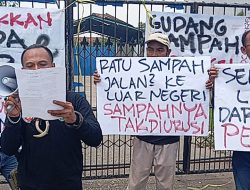 KKAN
PA
GUDANG
SAMPAH
RATU SAMPAH
JALAN² KE
LUAR NEGERI
SAMPAHNYA
TAK DIURUSI
SE
L
DAR
PE